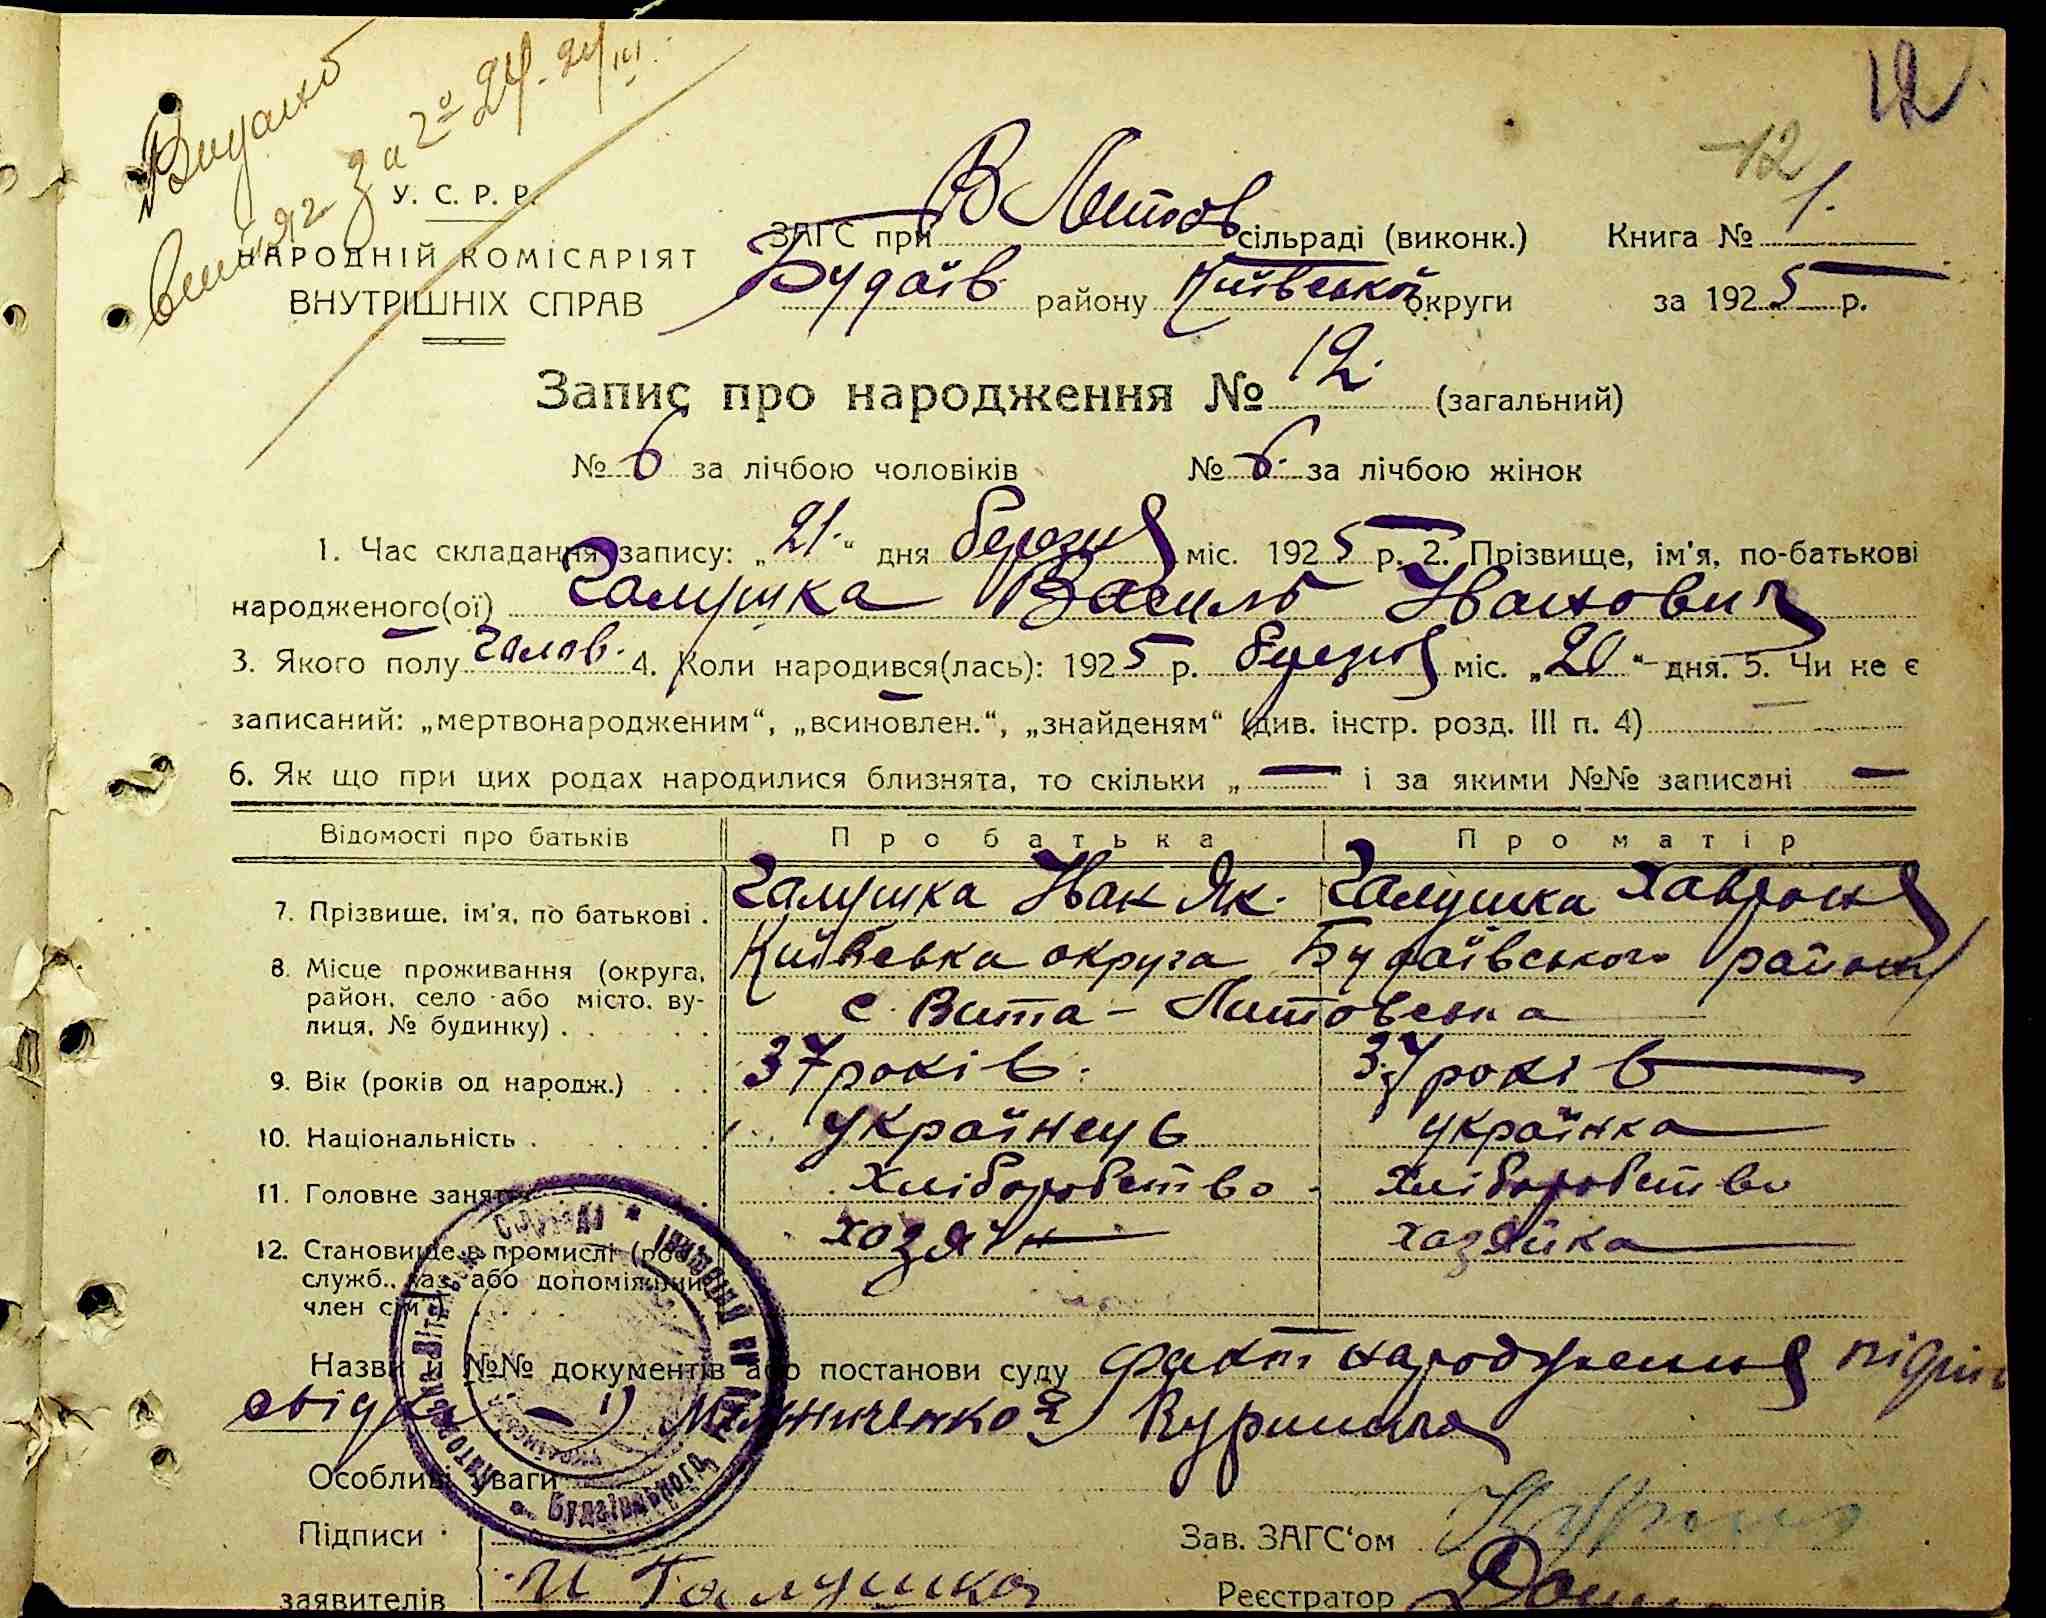 12
12
Видано
витяг за № 24. 24/III.
У. С. Р. Р.
НАРОДНІЙ КОМІСАРІЯТ
ВНУТРІШНІХ СПРАВ
ЗАГС при В Литов сільраді (виконк.) Книга № 1.
Будаїв району Київської округи за 1925 р.
Запис про народження № 12. (загальний)
№ 6 за лічбою чоловіків № 6. за лічбою жінок
1. Час складання запису: „21.“ дня березня міс. 1925 р. 2. Прізвище, ім'я, по-батькові
народженого(ої) Галушка Василь Іванович
3. Якого полу чолов. 4. Коли народився(лась): 1925 р. березня міс. „20“ дня. 5. Чи не є
записаний: „мертвонародженим“, „всиновлен.“, „знайденям“ (див. інстр. розд. III п. 4) —
6. Як що при цих родах народилися близнята, то скільки „—“ і за якими №№ записані —
Відомості про батьків Про батька Про матір
7. Прізвище, ім'я, по батькові . Галушка Іван Як. Галушка Хавроня
8. Місце проживання (округа, район, село або місто, вулиця, № будинку) . Київська округа Будаївського району
с. Вита - Литовська
9. Вік (років од народж.) 37 років. 37 років
10. Національність . українець українка
11. Головне заняття хліборобство хліборобство
12. Становище в промислі хозяїн хозяйка
служб., хаз. або допоміжний
член сім'ї)
Назви й №№ документів або постанови суду факт народження
свідки - 1) Мельниченко 2) Куриленко
Особливі уваги
Підписи Зав. ЗАГС'ом
заявителів И Галушка Реєстратор